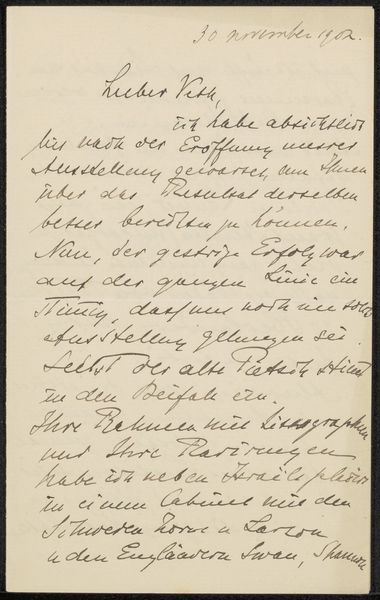 30 november 1902.
Lieber Veth,
ich habe absichtlich
bis nach der Eröffnung unsrer
Ausstellung gewartet, um Ihnen
über das Resultat derselben
besser berichten zu können.
Nun, der gestrige Erfolg war
auf der ganzen Linie ein
daß uns noch nie solch
Ausstellung gelungen sei.
Selbst der alte Pietsch stimmt
in den Beifall ein.
Ihre Rahmen mit Lithographien
und Ihre Radirungen
habe ich neben Israels
in einem Cabinet mit den
Schweden Zorn u Larson
u den Engländern Swan, Shannon